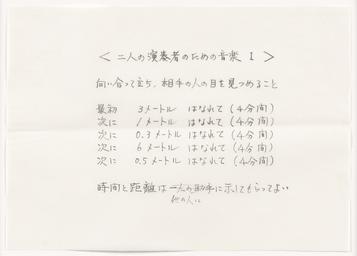 < 二人の演奏者のための音楽 I >
向い合って立ち、相手の人の目を見つめること
最初 3メートル はなれて (4分間)
次に 1メートル はなれて (4分間)
次に 0.3メートル はなれて (4分間)
次に 6メートル はなれて (4分間)
次に 0.5メートル はなれて (4分間)
時間と距離は一人の助手に示してもらってよい
他の人に